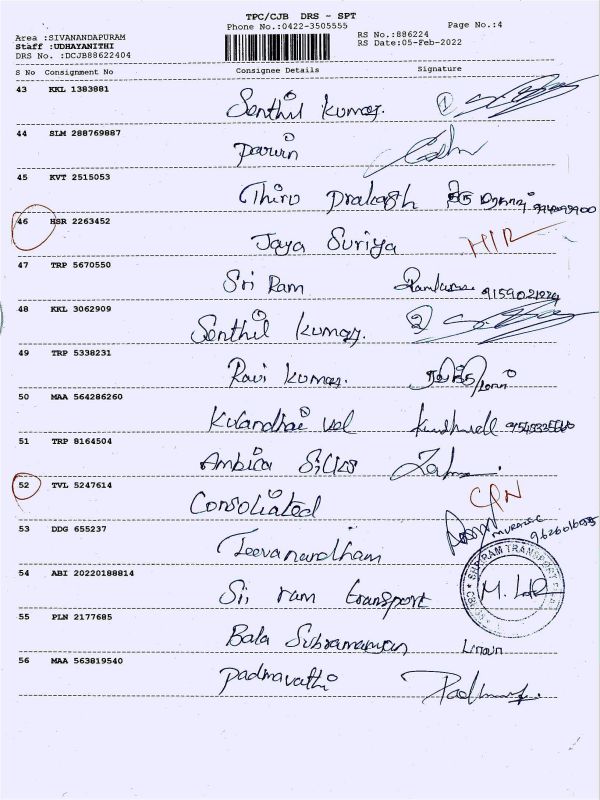 TPC/CJB DRS - SPT
Phone No.:0422-3505555 Page No.:4
Area :SIVANANDAPURAM RS No.:886224
Staff :UDHAYANITHI RS Date:05-Feb-2022
DRS No. :DCJB88622404
S No Consignment No Consignee Details Signature
43 KKL 1383881
Senthil Kumar. 1
44 SLM 288769887
Darwin
45 KVT 2515053
Thiru Prakash
46 HSR 2263452
Jaya Suriya
47 TRP 5670550
Sri Ram
48 KKL 3062909
Senthil Kumar. 2
49 TRP 5338231
Ravi Kumar.
50 MAA 564286260
Kulandhai vel
51 TRP 8164504
Ambica Silks
52 TVL 5247614
Consoliated
53 DDG 655237
Jeevanandham
54 ABI 20220188814
Sri ram transport
55 PLN 2177685
Bala Subramanyan
56 MAA 563819540
Padmavathi